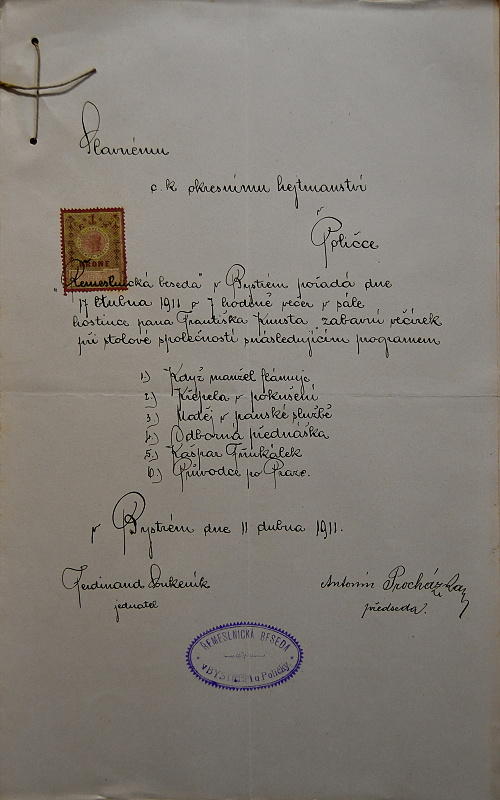 Slavnému
c. k. okresnímu hejtmanství
v
Poličce
1
KRONE
"Řemeslnická beseda" v Bystrém pořádá dne
17 dubna 1911 o 7 hodině večer v sále
hostince pana Františka Kunsta zábavní večírek
při stolové společnosti s následujícím programem
1) Když manžel flámuje
2) Křepela v pokušení
3) Matěj v panské službě
4) Odborná přednáška
5) Kašpar Trnkálek
6) Průvodce po Praze.
v Bystrém dne 11 dubna 1911.
Ferdinand Sukeník
Antonín Procházka
jednatel
předseda.
ŘEMESLNICKÁ BESEDA
v BYSTRÉM u Poličky